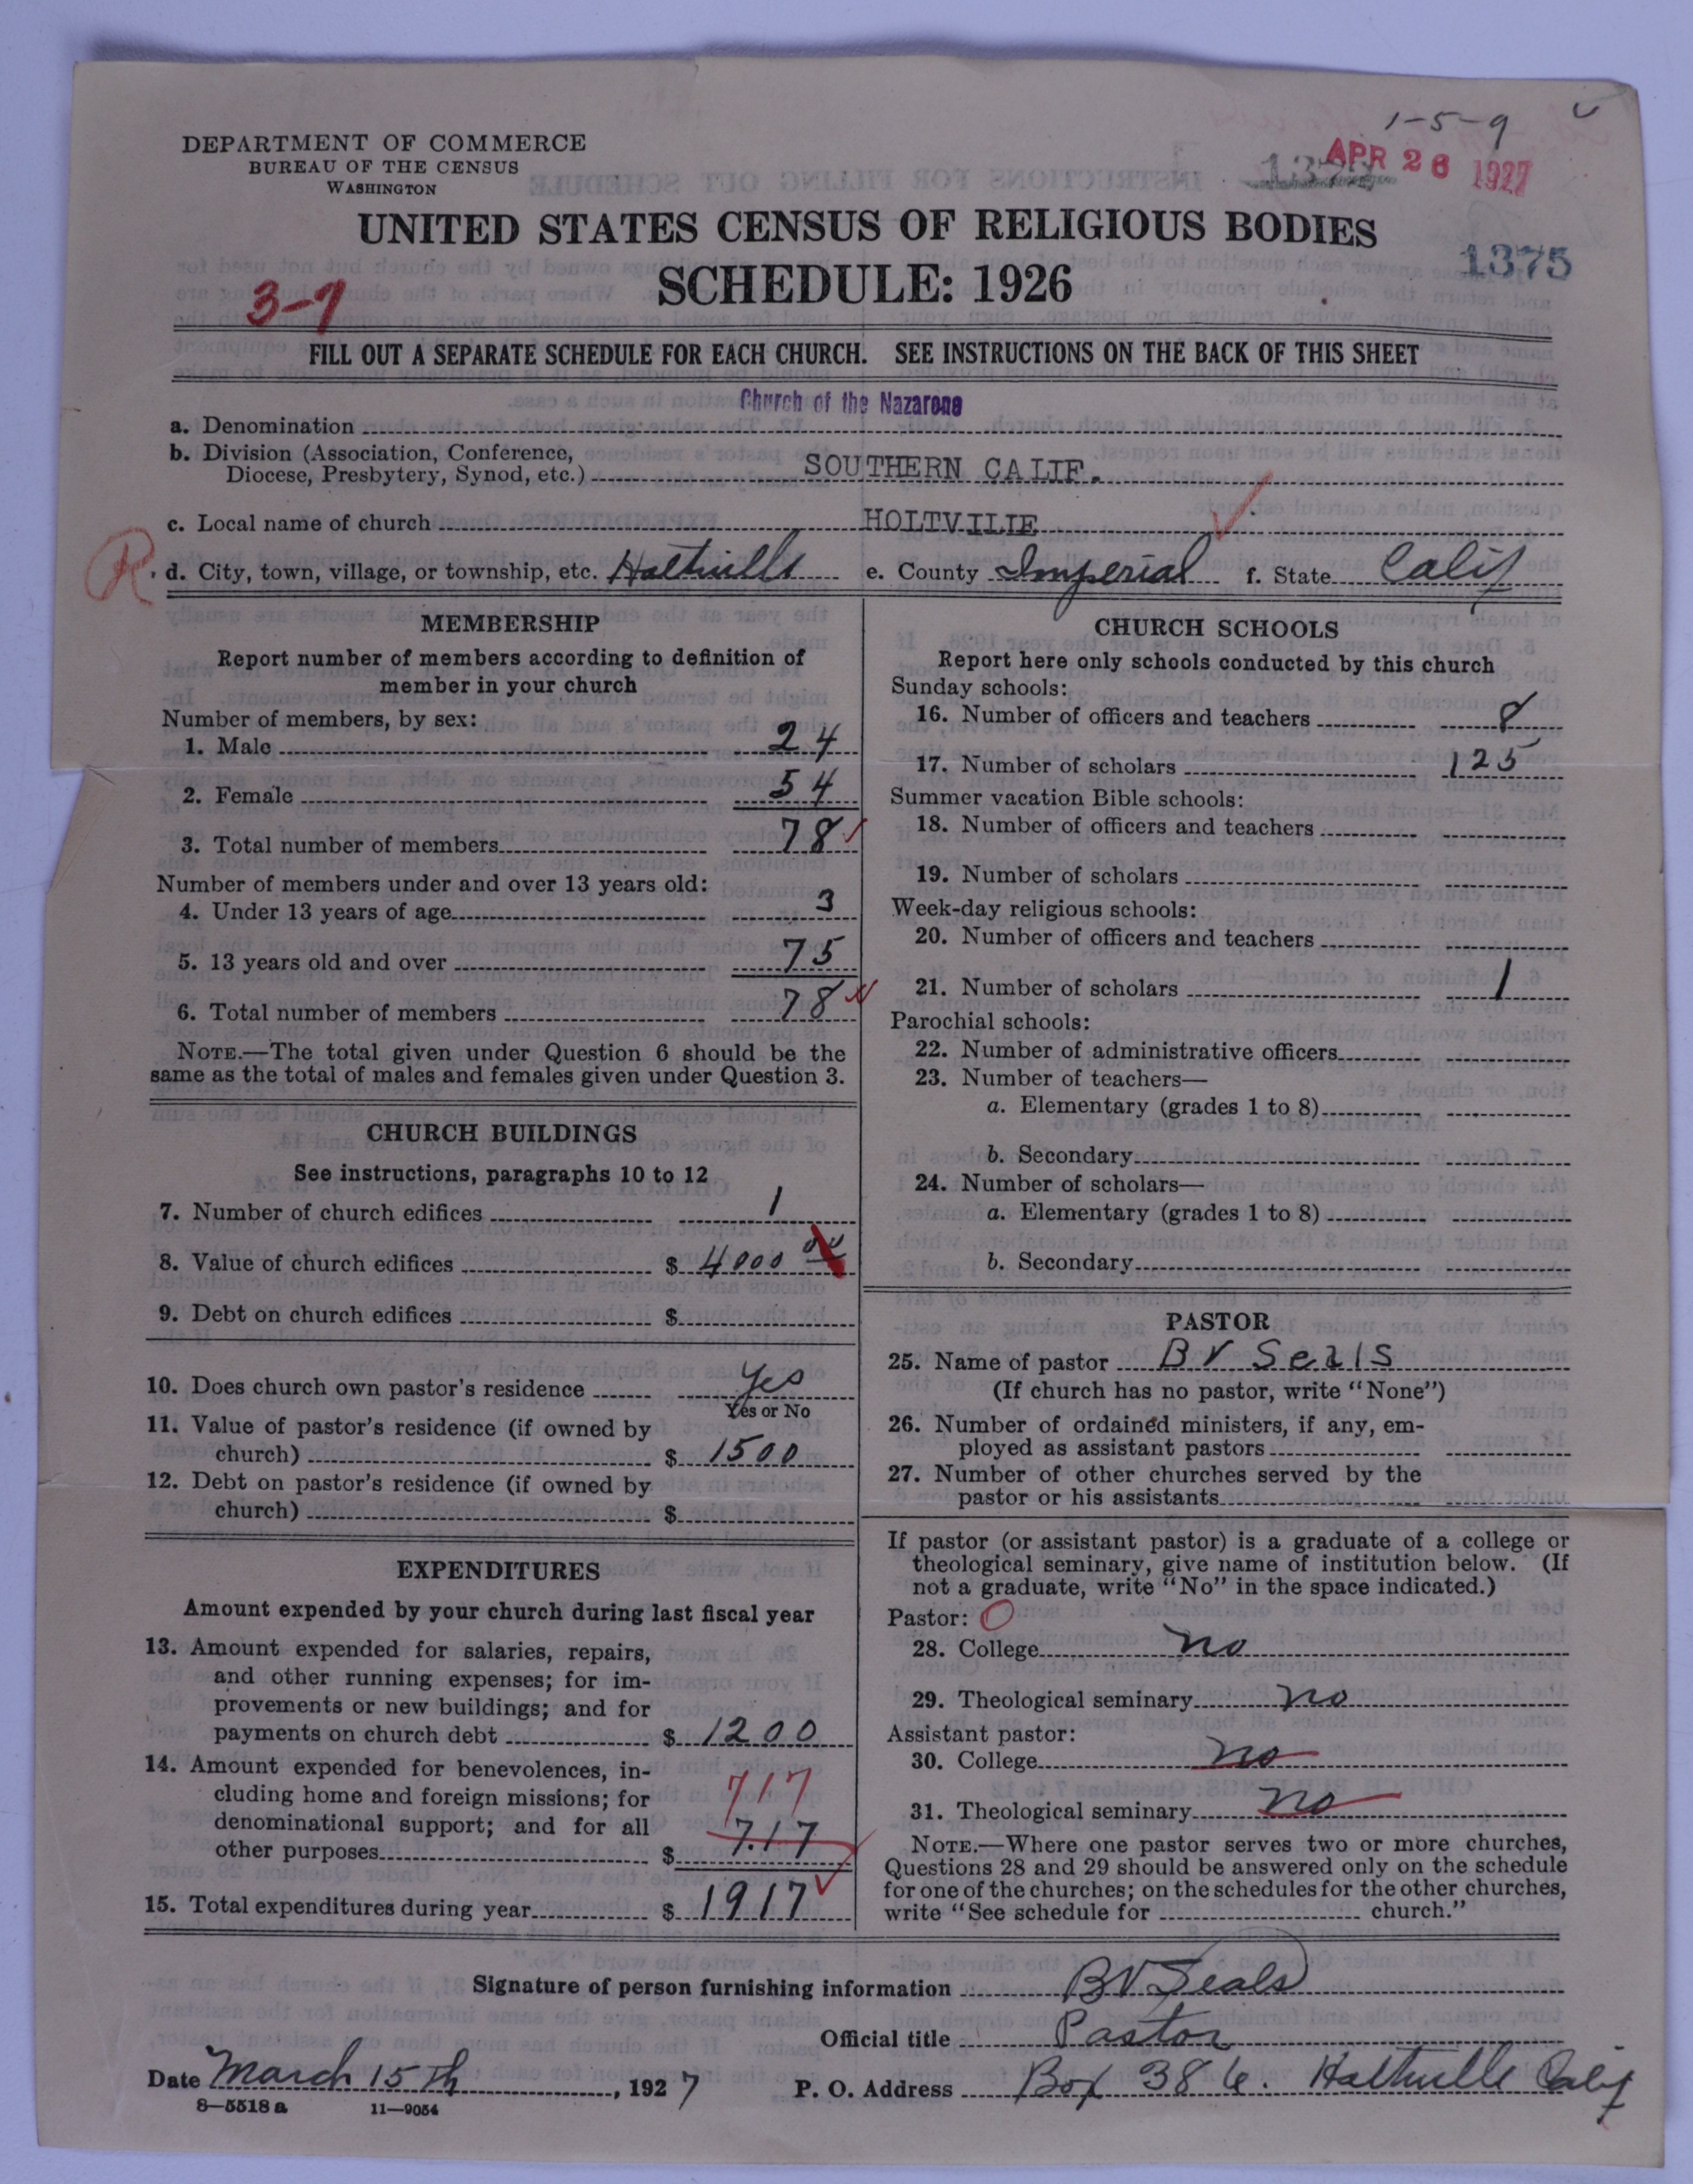 1-5-9
DEPARTMENT OF COMMERCE
BUREAU OF THE CENSUS
WASHINGTON
APR 26 1927
UNITED STATES CENSUS OF RELIGIOUS BODIES
SCHEDULE: 1926
1375
3-7
FILL OUT A SEPARATE SCHEDULE FOR EACH CHURCH. SEE INSTRUCTIONS ON THE BACK OF THIS SHEET
Church of the Nazarene
a. Denomination
b. Division (Association, Conference,
Diocese, Presbytery, Synod, etc.) SOUTHERN CALIF.
c. Local name of church HOLTVILIE
R
d. City, town, village, or township, etc. Holtville e. County Imperial f. State Calif
MEMBERSHIP
Report number of members according to definition of
member in your church
Number of members, by sex:
1. Male 24
2. Female 54
3. Total number of members 78
Number of members under and over 13 years old:
4. Under 13 years of age 3
5. 13 years old and over 75
6. Total number of members 78
NOTE.—The total given under Question 6 should be the
same as the total of males and females given under Question 3.
CHURCH BUILDINGS
See instructions, paragraphs 10 to 12
7. Number of church edifices 1
8. Value of church edifices $ 4000 00
9. Debt on church edifices $
10. Does church own pastor's residence Yes
Yes or No
11. Value of pastor's residence (if owned by
church) $ 1500
12. Debt on pastor's residence (if owned by
church) $
EXPENDITURES
Amount expended by your church during last fiscal year
13. Amount expended for salaries, repairs,
and other running expenses; for im-
provements or new buildings; and for
payments on church debt $ 1200
14. Amount expended for benevolences, in-
cluding home and foreign missions; for 717
denominational support; and for all
other purposes $ 7.17
15. Total expenditures during year $ 1917
CHURCH SCHOOLS
Report here only schools conducted by this church
Sunday schools:
16. Number of officers and teachers 8
17. Number of scholars 125
Summer vacation Bible schools:
18. Number of officers and teachers
19. Number of scholars
Week-day religious schools:
20. Number of officers and teachers
21. Number of scholars 1
Parochial schools:
22. Number of administrative officers
23. Number of teachers—
a. Elementary (grades 1 to 8)
b. Secondary
24. Number of scholars—
a. Elementary (grades 1 to 8)
b. Secondary
PASTOR
25. Name of pastor B V Seals
(If church has no pastor, write "None")
26. Number of ordained ministers, if any, em-
ployed as assistant pastors
27. Number of other churches served by the
pastor or his assistants
If pastor (or assistant pastor) is a graduate of a college or
theological seminary, give name of institution below. (If
not a graduate, write "No" in the space indicated.)
Pastor: O
28. College no
29. Theological seminary no
Assistant pastor:
30. College no
31. Theological seminary no
NOTE.—Where one pastor serves two or more churches,
Questions 28 and 29 should be answered only on the schedule
for one of the churches; on the schedules for the other churches,
write "See schedule for church."
Signature of person furnishing information BV Seals
Official title Pastor
Date March 15th, 1927 P. O. Address Box 386. Holtville Calif
8—5518a 11—9054